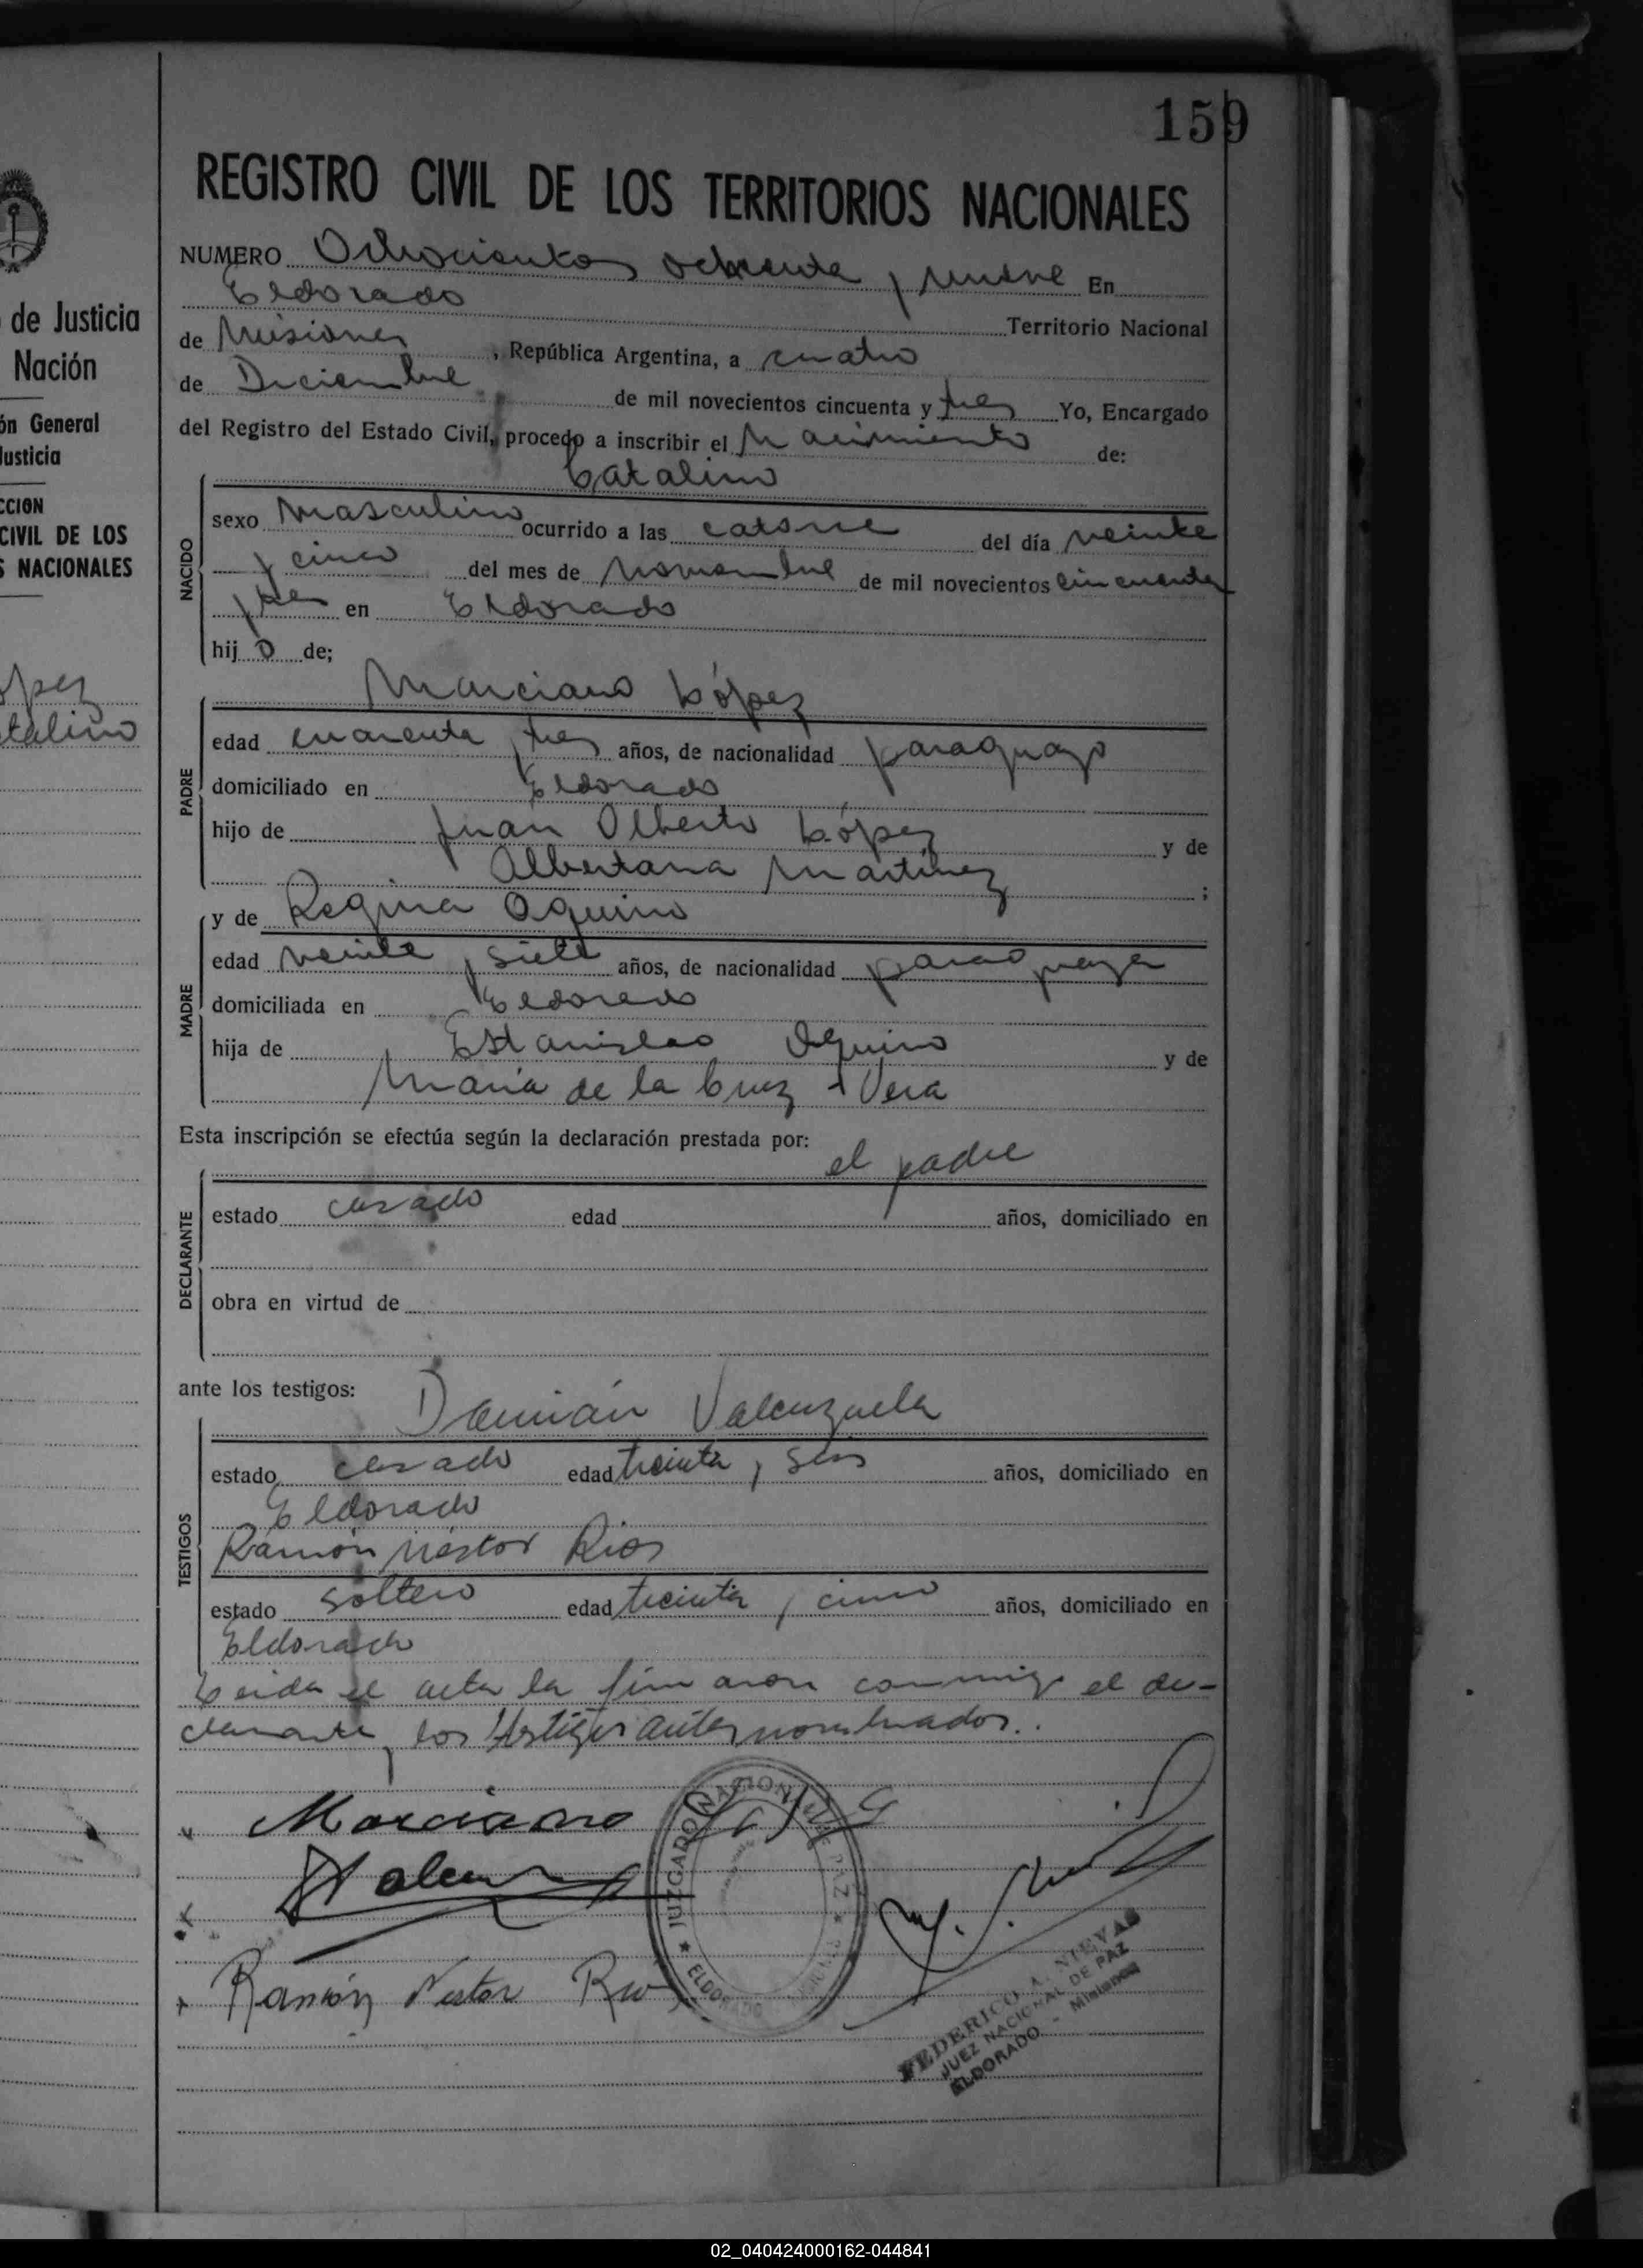 159
REGISTRO CIVIL DE LOS TERRITORIOS NACIONALES
NUMERO Ochocientos ochenta y nueve En
Eldorado Territorio Nacional
de Misiones, República Argentina, a cuatro
de Diciembre de mil novecientos cincuenta y tres Yo, Encargado
del Registro del Estado Civil, procedo a inscribir el Nacimiento de:
Catalino
NACIDO
sexo Masculino ocurrido a las catorce del día veinte
y cinco del mes de Noviembre de mil novecientos cincuenta
y tres en Eldorado
hij o de;
Marciano López
PADRE
edad cuarenta y tres años, de nacionalidad paraguayo
domiciliado en Eldorado
hijo de Juan Alberto López y de
Albertana Martínez ;
MADRE
y de Regina Aquino
edad veinte y siete años, de nacionalidad paraguaya
domiciliada en Eldorado
hija de Estanislao Aquino y de
María de la Cruz Vera
Esta inscripción se efectúa según la declaración prestada por:
el padre
DECLARANTE
estado casado edad años, domiciliado en
obra en virtud de
ante los testigos:
Damián Valenzuela
TESTIGOS
estado casado edad treinta y seis años, domiciliado en
Eldorado
Ramón Néstor Rios
estado soltero edad treinta y cinco años, domiciliado en
Eldorado
Leida el acta la firmaron conmigo el de-
clarante y los testigos antes nombrados.
Marciano
Ramón Nestor
JUZGADO NACIONAL DE PAZ
ELDORADO
FEDERICO A. NIEVAS
JUEZ NACIONAL DE PAZ
ELDORADO - Misiones
de Justicia
Nación
ón General
Justicia
CCION
CIVIL DE LOS
S NACIONALES
ópez
talino
02_040424000162-044841